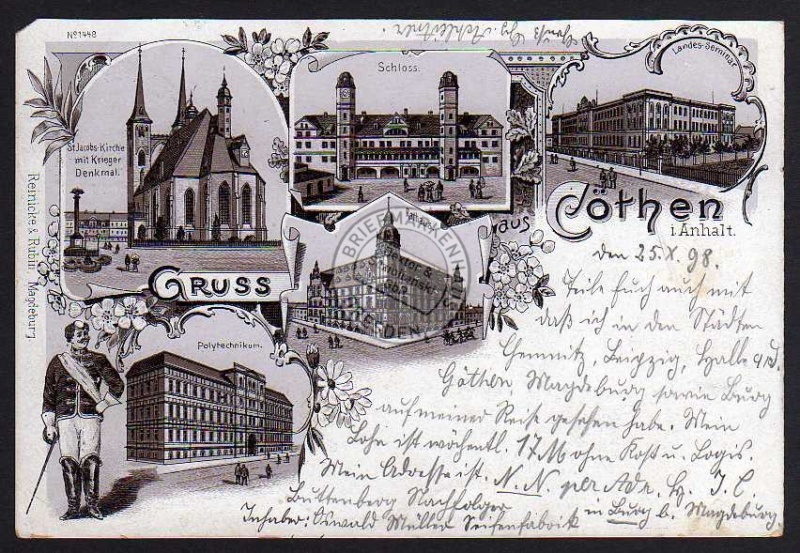 No 1448
Gruß
St. Jacobs-Kirche
mit Krieger
Denkmal.
Schloss.
Landes-Seminar
Rathaus
Polytechnikum.
Reinicke & Rubin Magdeburg
GRUSS
aus
Cöthen
i Anhalt.
den 25.X.98.
Teile Euch auch mit
daß ich in den Städten
Chemnitz, Leipzig, Halle a/S.
Göthen, Magdeburg sowie Burg
auf meiner Reise gesehen habe. Mein
Lohn ist wöchentl. 17 M ohne Kost u. Logis.
Mein Adresse ist. N. N. per Adr. H. J. C.
Buttenberg Nachfolger
in Burg b. Magdeburg.
Inhaber: Oswald Müller Seifenfabrik
BRIEFMARKEN
DRESDEN